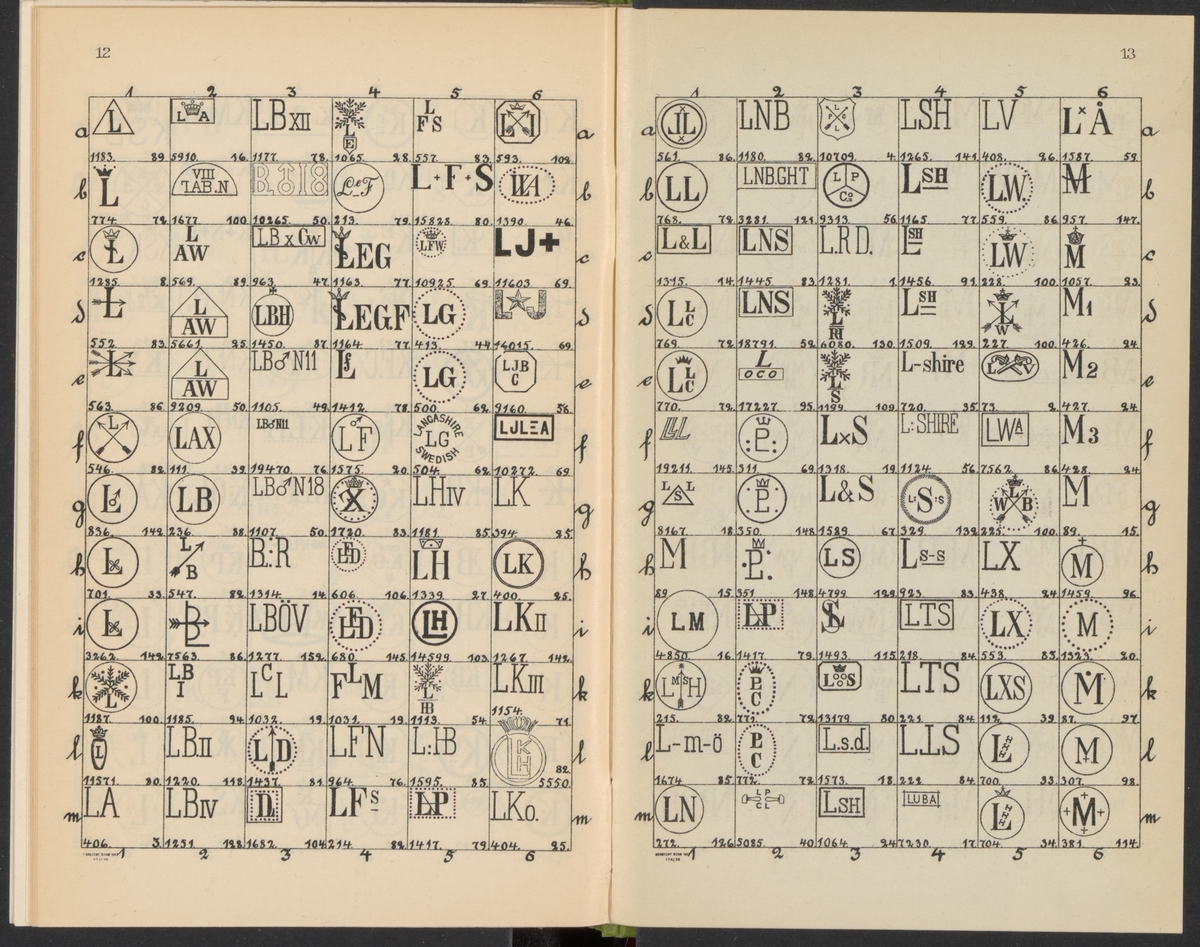 12
1 2 3 4 5 6
a L L A LBXII L E L FS L I a
1183. 89. 5910. 16. 1177. 78. 1065. 28. 557. 83. 593. 102.
b L VIII TAB.N B♂18 LeF L+F+S b
774. 72. 1677. 100. 10265. 50. 213. 79. 15828. 80. 1390. 46.
c L L AW LB x Cw LEG LFW LJ+ c
1285. 8. 569. 89. 963. 47. 1163. 77. 10925. 69. 11603. 69.
d L L AW LBH LEGF LG L★J d
552. 83. 5661. 25. 1450. 87. 1164. 77. 413. 44. 14015. 69.
e L L AW LB♂N11 Lf LG LJB C e
563. 86. 9209. 50. 1105. 49. 1412. 78. 500. 62. 9160. 56.
f LAX LB♂N11 LF LANCASHIRE LG SWEDISH LJLEA f
546. 82. 111. 39. 19470. 76. 1575. 20. 504. 62. 10272. 69.
g L LB LB♂N18 X LHIV LK g
836. 142. 236. 88. 1107. 50. 1720. 83. 1181. 85. 394. 25.
h L L B B:R LH LK h
701. 33. 547. 82. 1314. 14. 606. 106. 1339. 27. 400. 25.
i L LBÖV LH LKII i
3262. 142. 7563. 86. 1277. 159. 680. 145. 14599. 103. 1267. 142.
k L LB I LCL FLM L HB LKIII k
1187. 100. 1185. 94. 1032. 19. 1031. 19. 1113. 54. 1154. 71.
l L LBII L D LFN L:HB LKH l
11571. 80. 1220. 118. 1437. 81. 964. 76. 1595. 85. 5550. 82.
m LA LBIV LFs LP LKo. m
406. 3. 1251. 128. 1682. 104. 214. 82. 1417. 79. 404. 25.
1 2 3 4 5 6
13
1 2 3 4 5 6
a JL LNB LSH LV L×Å a
561. 86. 1180. 82. 10709. 4. 1265. 141. 408. 26. 1587. 59.
b LL LNB.GHT L P Co LSH L.W. M b
768. 72. 3281. 121. 9313. 56. 1165. 77. 559. 86. 957. 147.
c L&L LNS L.R.D. LSH LW M c
1315. 14. 1445. 83. 1281. 1. 1456. 91. 228. 100. 1057. 23.
d LLC LNS L LSH L W M1 d
769. 72. 18791. 52. 6080. 130. 1509. 129. 227. 100. 426. 24.
e LLC L OCO L S L-shire L V M2 e
770. 72. 17227. 95. 1199. 109. 720. 35. 73. 2. 427. 24.
f LL .P. LxS L:SHIRE LWA M3 f
19211. 145. 311. 69. 1318. 19. 1124. 56. 7562. 86. 428. 24.
g LSL P L&S S W L B M g
8167. 18. 350. 148. 1589. 67. 329. 132. 225. 100. 89. 15.
h M .P. LS LS-S LX M h
89 15. 351. 148. 4799. 129. 923. 83. 438. 24. 1459. 96.
i LM LP LTS LX M i
4850. 16. 1417. 79. 1493. 115. 218. 84. 553. 83. 1323. 20.
k LMSH C L S LTS LXS M k
215. 82. 771. 72. 13179. 80. 221. 84. 112. 39. 87. 97.
l L-m-ö C L.s.d. L.LS L M l
1674 85. 772. 72. 1573. 18. 222. 84. 700. 33. 307. 98.
m LN LP CL LSH LUBA L +M+ m
272. 126. 5085. 40. 1064. 24. 7230. 17. 704. 34. 381. 114.
1 2 3 4 5 6